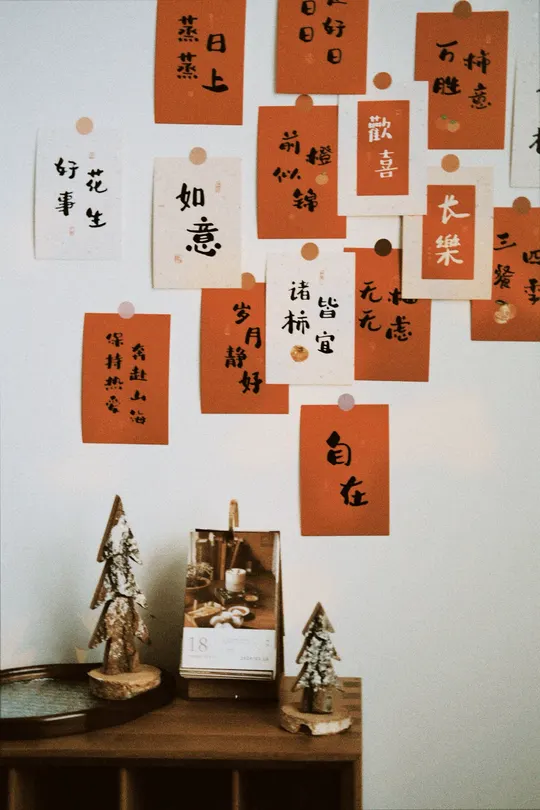 蒸蒸
日上
日日
好日
万柿
胜意
歡喜
前橙
似锦
好事
花生
如意
长樂
三餐
四季
诸柿
皆宜
无
无虑
岁月
静好
保持热爱
奔赴山海
自在
18